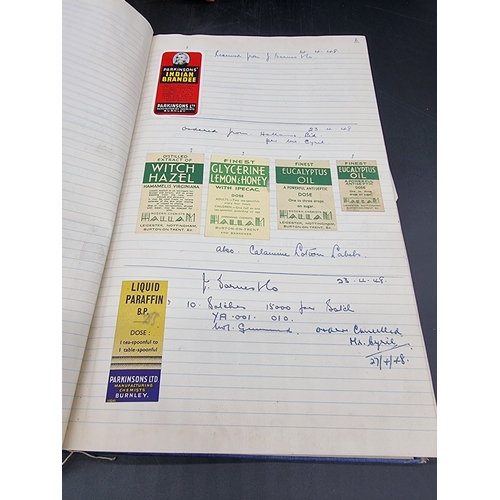 Received from J Barnes & Co 4 48
PARKINSONS'
INDIAN
BRANDEE
PARKINSONS LTD
BURNLEY
ordered from Hallams Ltd 23.4.48
per Mr Cyril
DISTILLED
EXTRACT OF
WITCH
HAZEL
HAMAMELIS VIRGINIANA
HALLAM
LEICESTER, NOTTINGHAM,
BURTON-ON-TRENT, &c
FINEST
GLYCERINE
LEMON & HONEY
WITH IPECAC.
DOSE
HALLAM
LEICESTER, NOTTINGHAM,
BURTON-ON-TRENT
FINEST
EUCALYPTUS
OIL
A POWERFUL ANTISEPTIC
DOSE
One to three drops
on sugar.
HALLAM
LEICESTER, NOTTINGHAM,
BURTON-ON-TRENT, &c
FINEST
EUCALYPTUS
OIL
A POWERFUL ANTISEPTIC
DOSE
HALLAM
also Calamine Lotion Labels.
J. Barnes & Co 23.4.48.
LIQUID
PARAFFIN
B.P.
DOSE :
1 tea-spoonful to
1 table-spoonful
PARKINSONS LTD.
MANUFACTURING
CHEMISTS
BURNLEY.
10 Batches 15000 per Batch
YA.001. 010.
Not Gummed. order Cancelled
Mr Cyril
27/4/48.